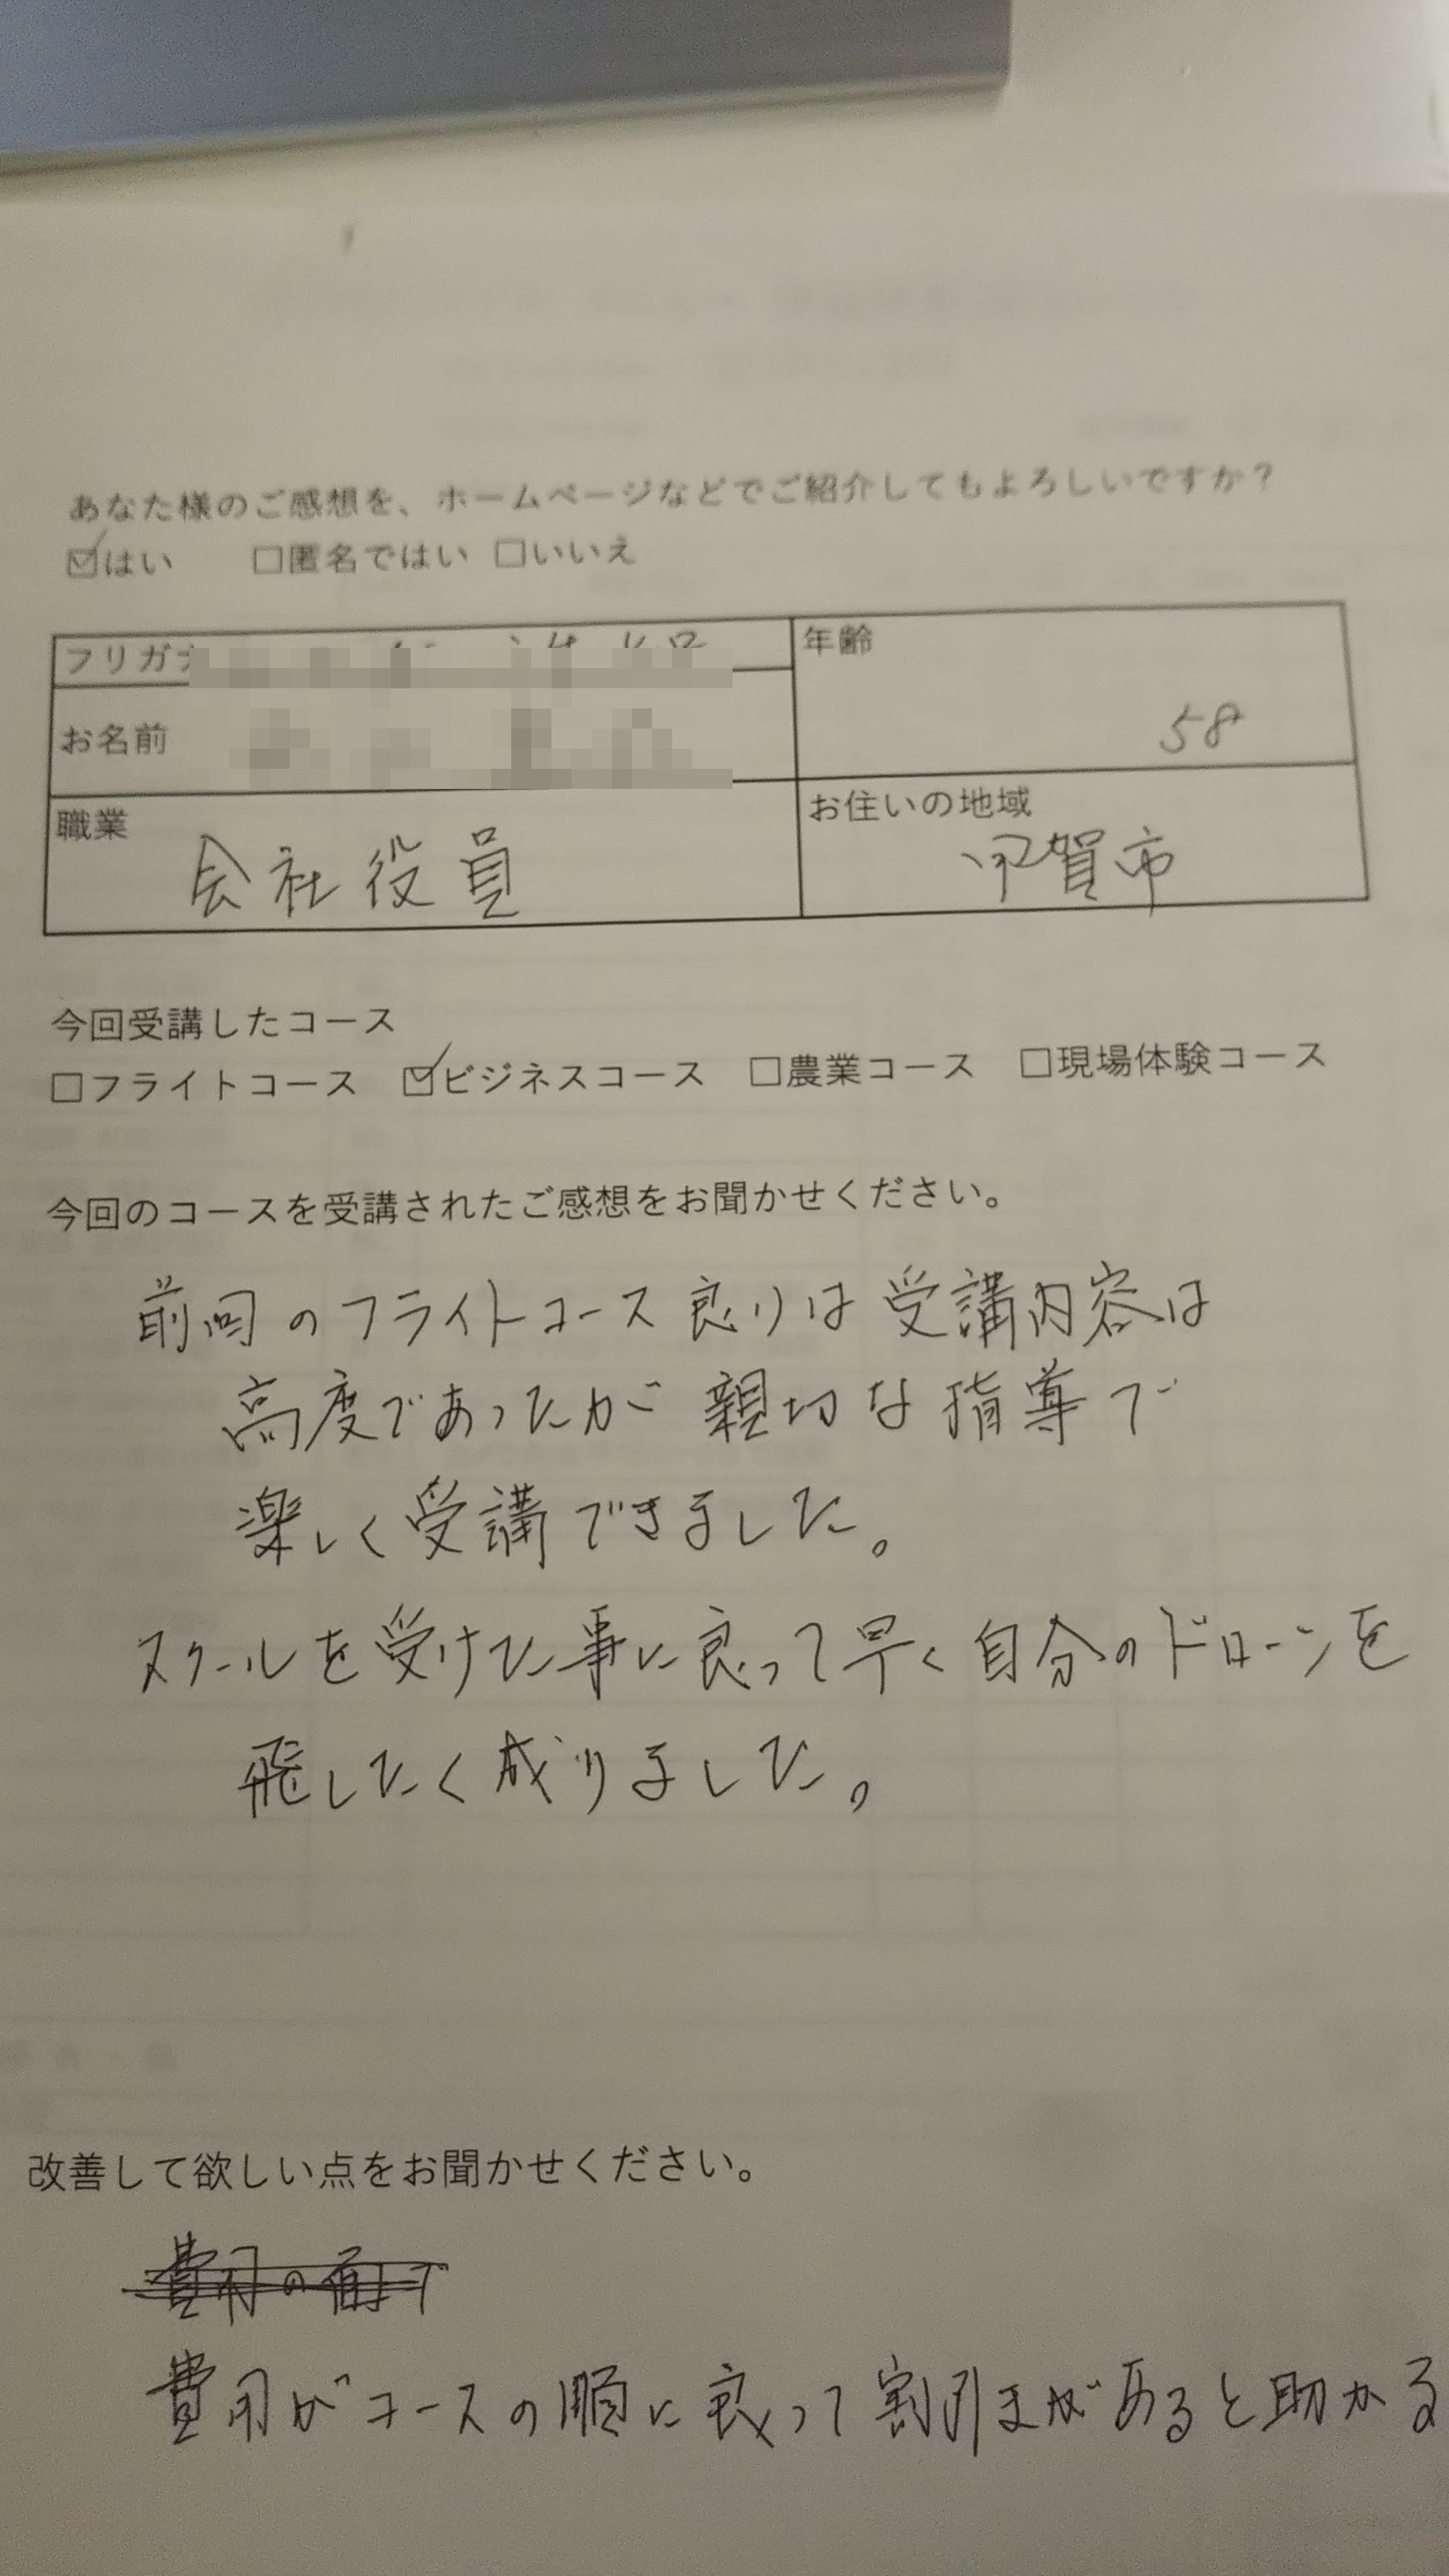 あなた様のご感想を、ホームページなどでご紹介してもよろしいですか？
☑はい □匿名ではい □いいえ
フリガナ
年齢
58
お名前
職業
会社役員
お住いの地域
甲賀市
今回受講したコース
□フライトコース ☑ビジネスコース □農業コース □現場体験コース
今回のコースを受講されたご感想をお聞かせください。
前回のフライトコース良りは受講内容は
高度であったが親切な指導で
楽しく受講できました。
スクールを受けた事に良って早く自分のドローンを
飛したく成りました。
改善して欲しい点をお聞かせください。
費用の面で
費用がコースの順に良って割引きがあると助かる